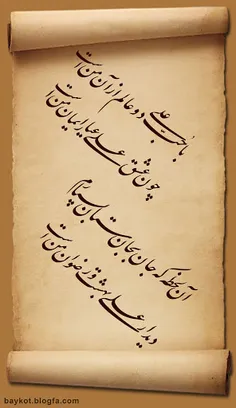 با حب علی دو عالم از آن من است
چون عشق علی عیار ایمان من است
آن لحظه که جان بجان ستان بسپارم
دیدار علی بهشت و رضوان من است
baykot.blogfa.com